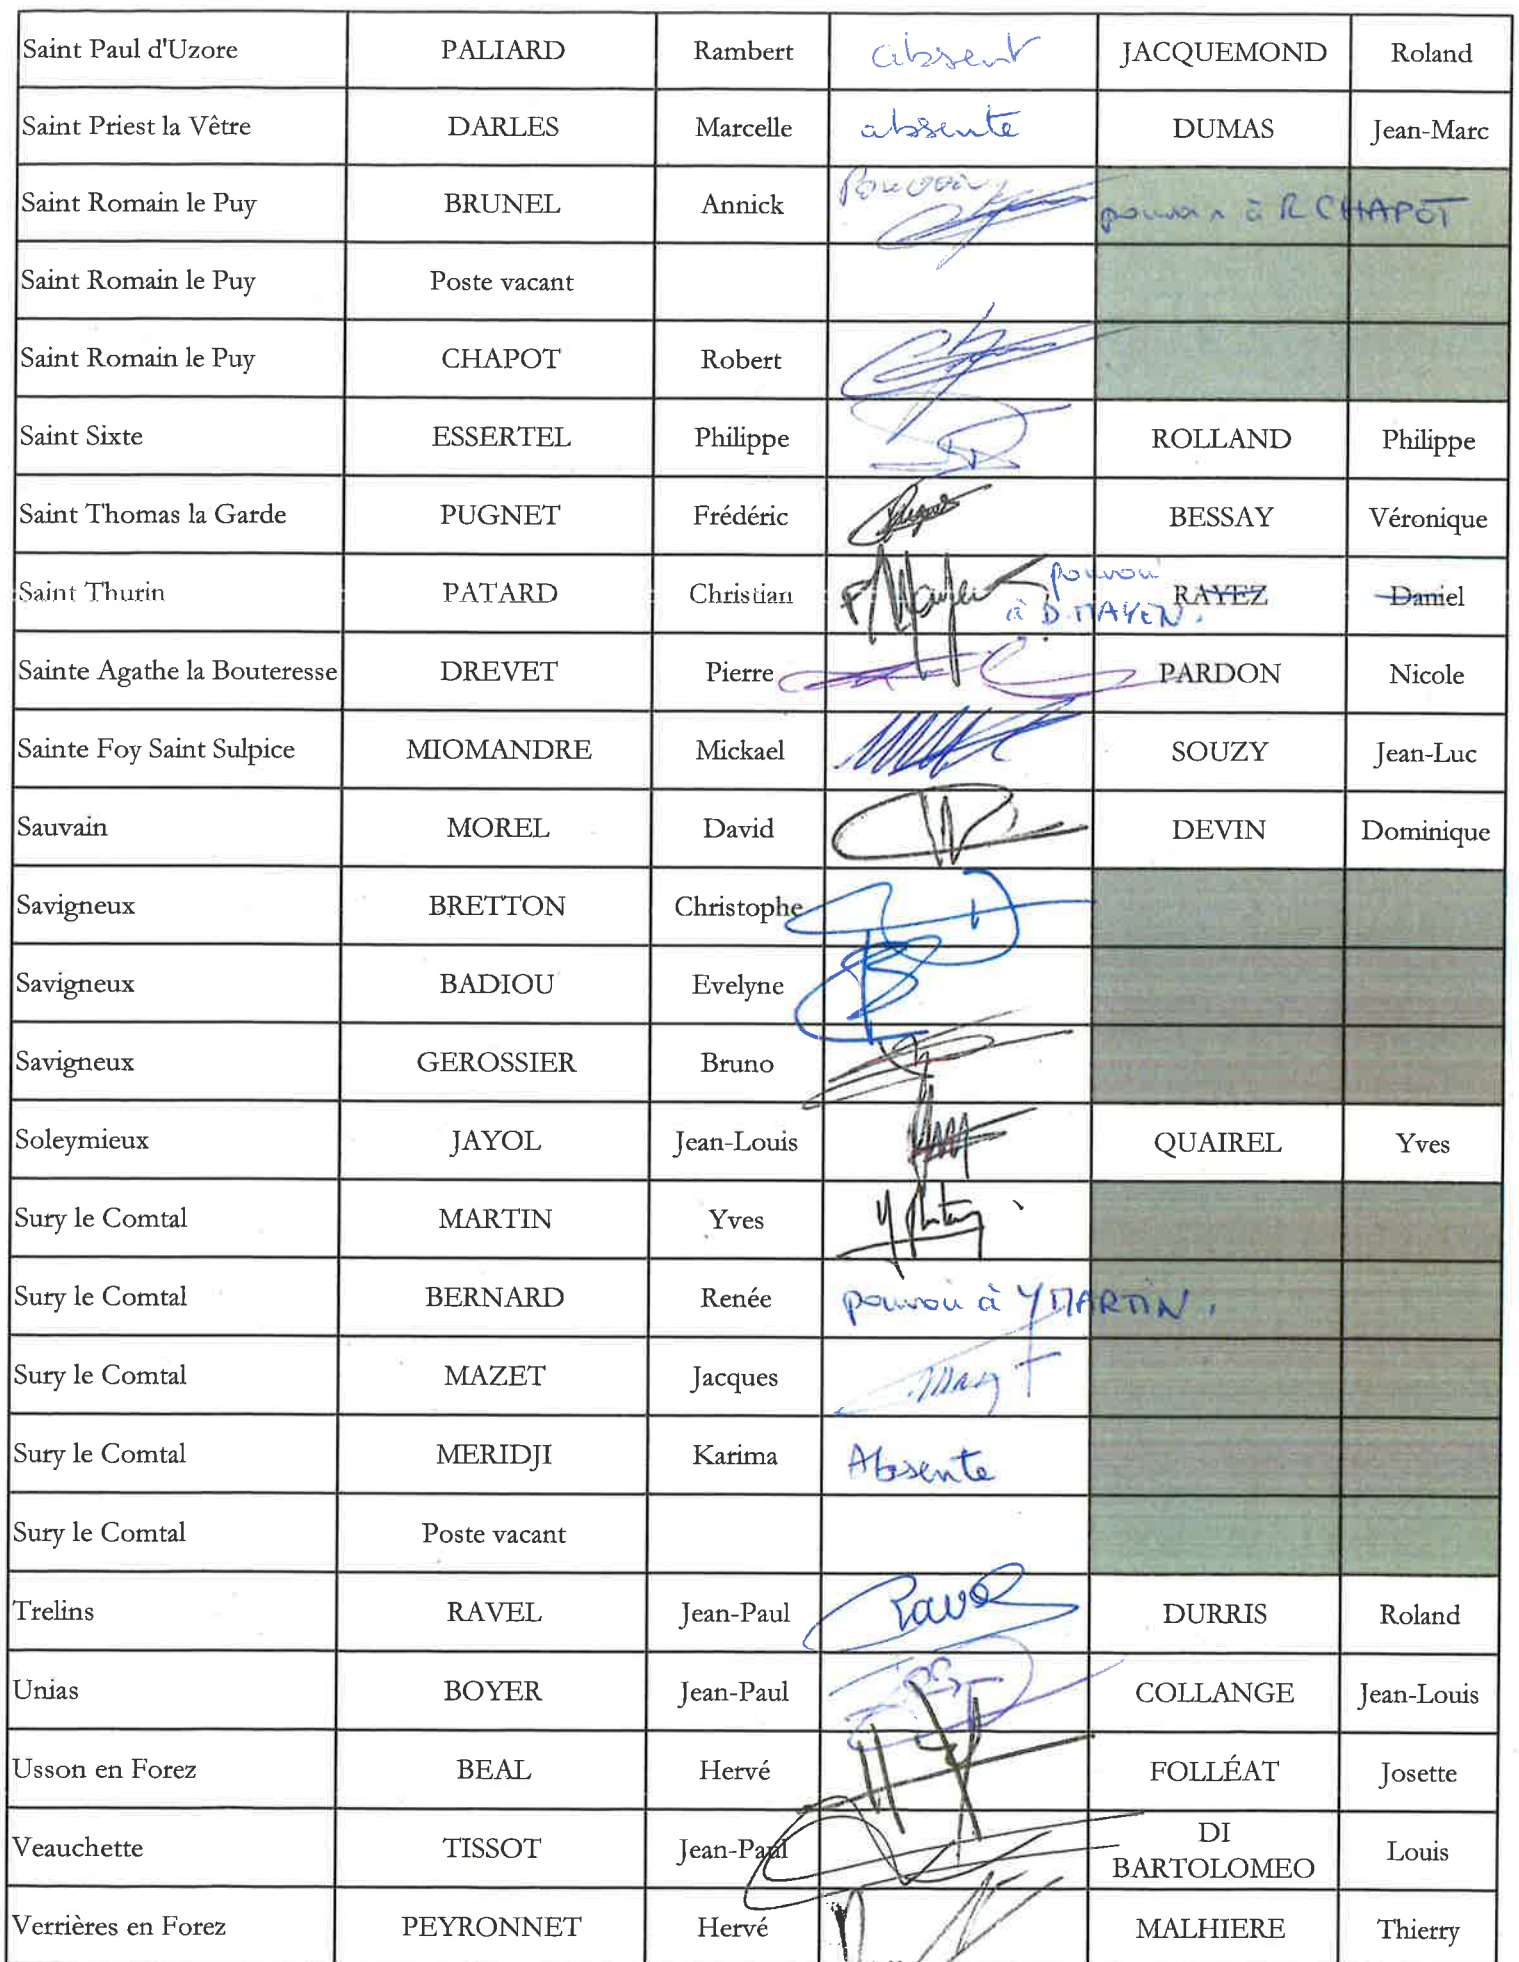 Saint Paul d'Uzore PALIARD Rambert absent JACQUEMOND Roland
Saint Priest la Vêtre DARLES Marcelle absente DUMAS Jean-Marc
Saint Romain le Puy BRUNEL Annick Pouvoir pouvoir à R CHAPOT
Saint Romain le Puy Poste vacant
Saint Romain le Puy CHAPOT Robert
Saint Sixte ESSERTEL Philippe ROLLAND Philippe
Saint Thomas la Garde PUGNET Frédéric BESSAY Véronique
Saint Thurin PATARD Christian pouvoir à D. MAYEN. RAYEZ Daniel
Sainte Agathe la Bouteresse DREVET Pierre PARDON Nicole
Sainte Foy Saint Sulpice MIOMANDRE Mickael SOUZY Jean-Luc
Sauvain MOREL David DEVIN Dominique
Savigneux BRETTON Christophe
Savigneux BADIOU Evelyne
Savigneux GEROSSIER Bruno
Soleymieux JAYOL Jean-Louis QUAIREL Yves
Sury le Comtal MARTIN Yves
Sury le Comtal BERNARD Renée pouvoir à Y MARTIN.
Sury le Comtal MAZET Jacques
Sury le Comtal MERIDJI Karima Absente
Sury le Comtal Poste vacant
Trelins RAVEL Jean-Paul Ravel DURRIS Roland
Unias BOYER Jean-Paul COLLANGE Jean-Louis
Usson en Forez BEAL Hervé FOLLÉAT Josette
Veauchette TISSOT Jean-Paul DI BARTOLOMEO Louis
Verrières en Forez PEYRONNET Hervé MALHIERE Thierry